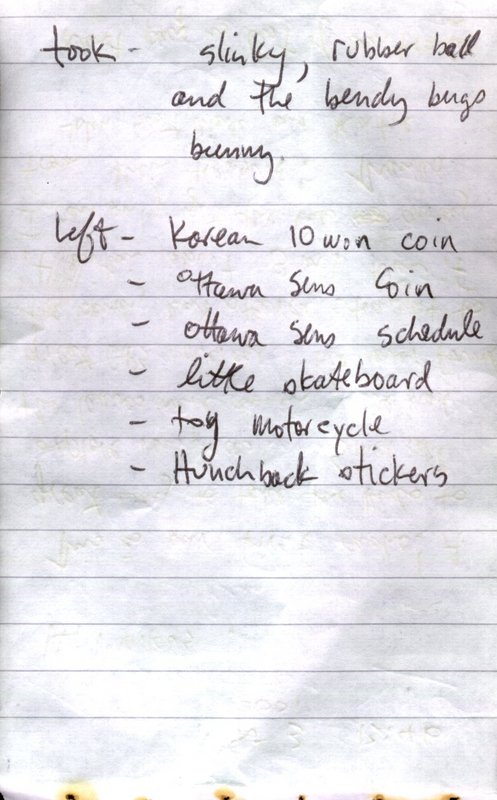 took - slinky, rubber ball
and the bendy bugs
bunny.
left - Korean 10 won coin
- Ottawa Sens Coin
- Ottawa Sens schedule
- little skateboard
- toy motorcycle
- Hunchback stickers